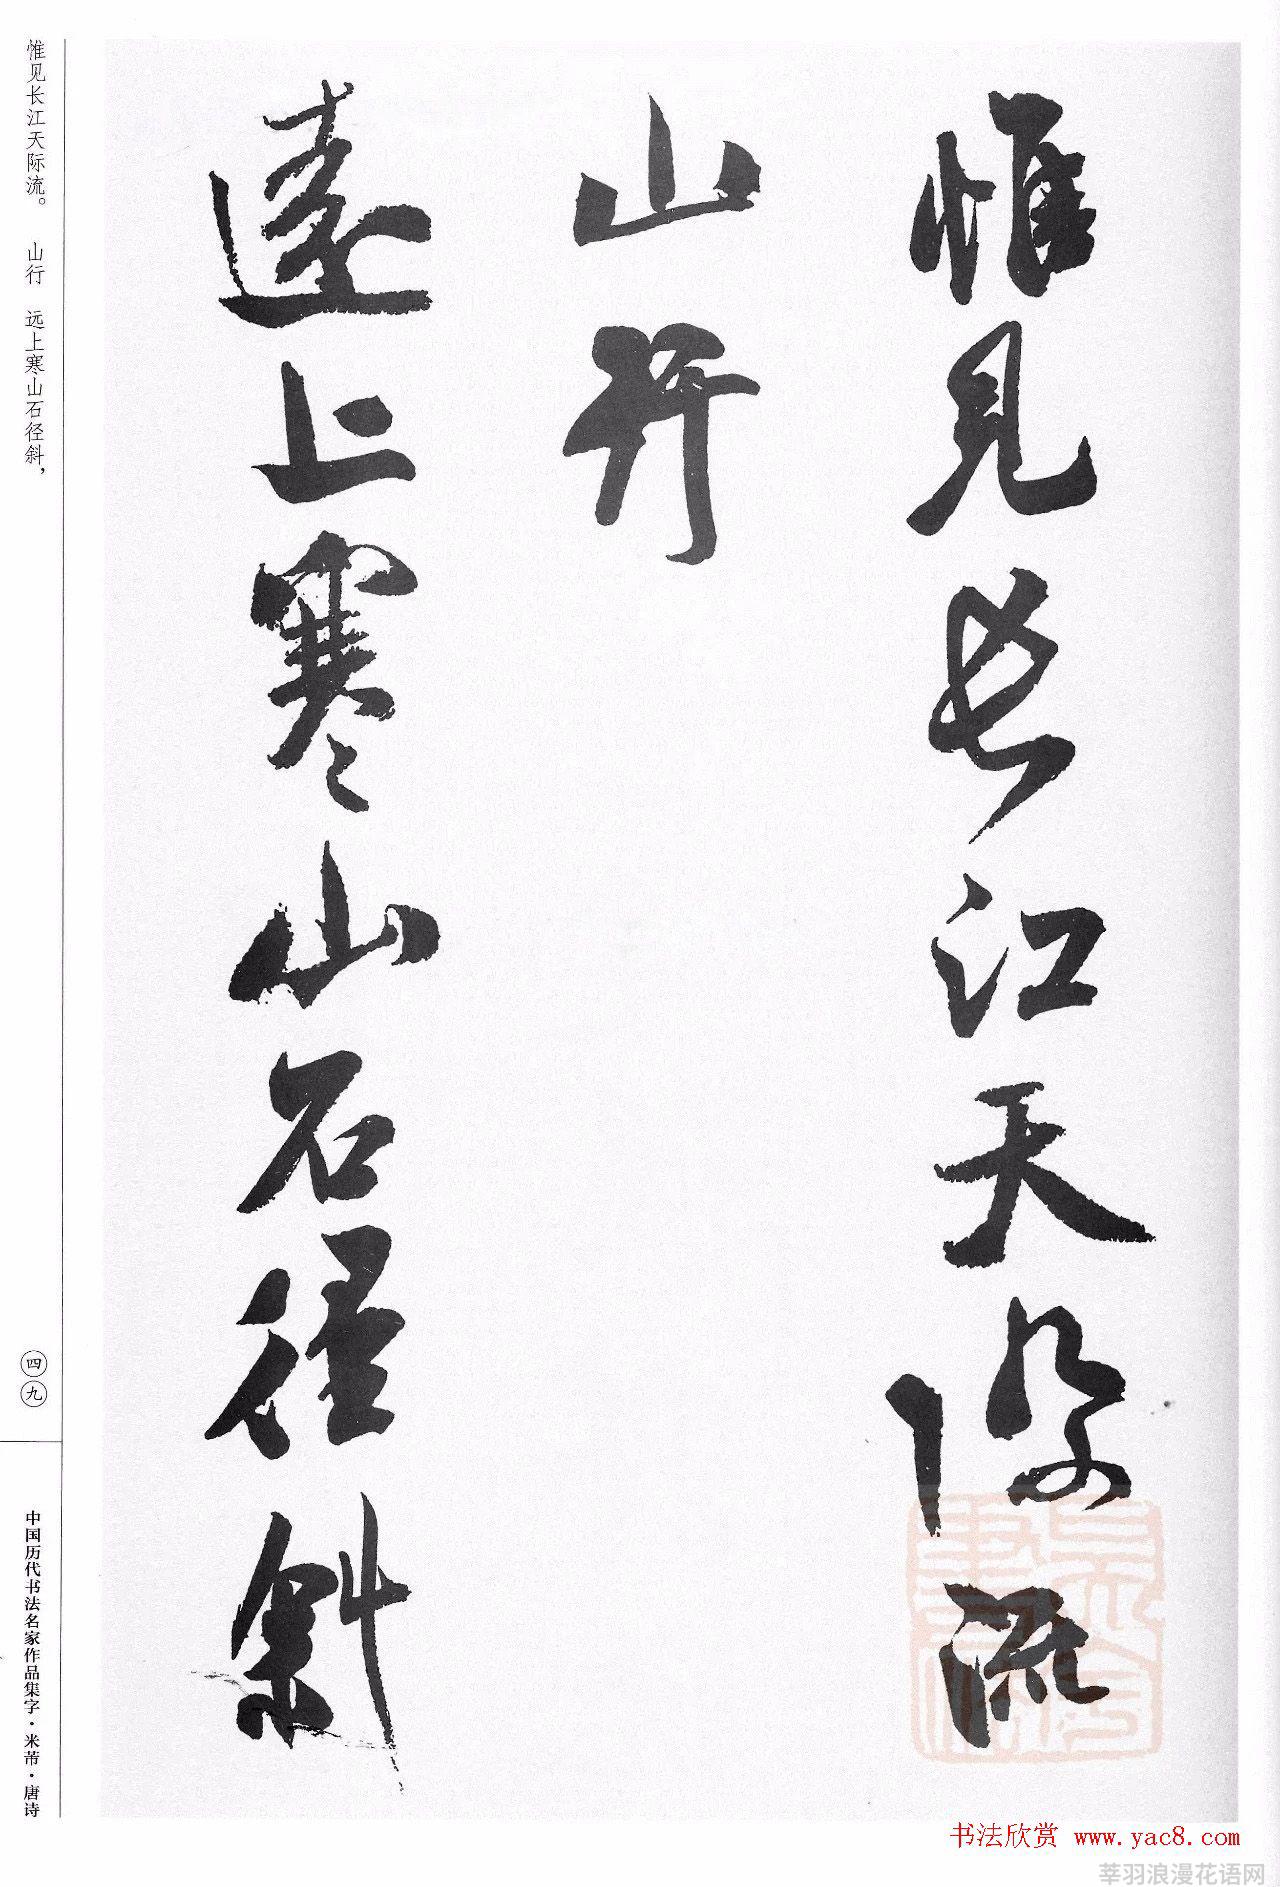 惟見長江天際流
山行
遠上寒山石徑斜
惟见长江天际流。 山行 远上寒山石径斜，
四九
中国历代书法名家作品集字·米芾·唐诗
书法欣赏 www.yac8.com
莘羽浪漫花语网